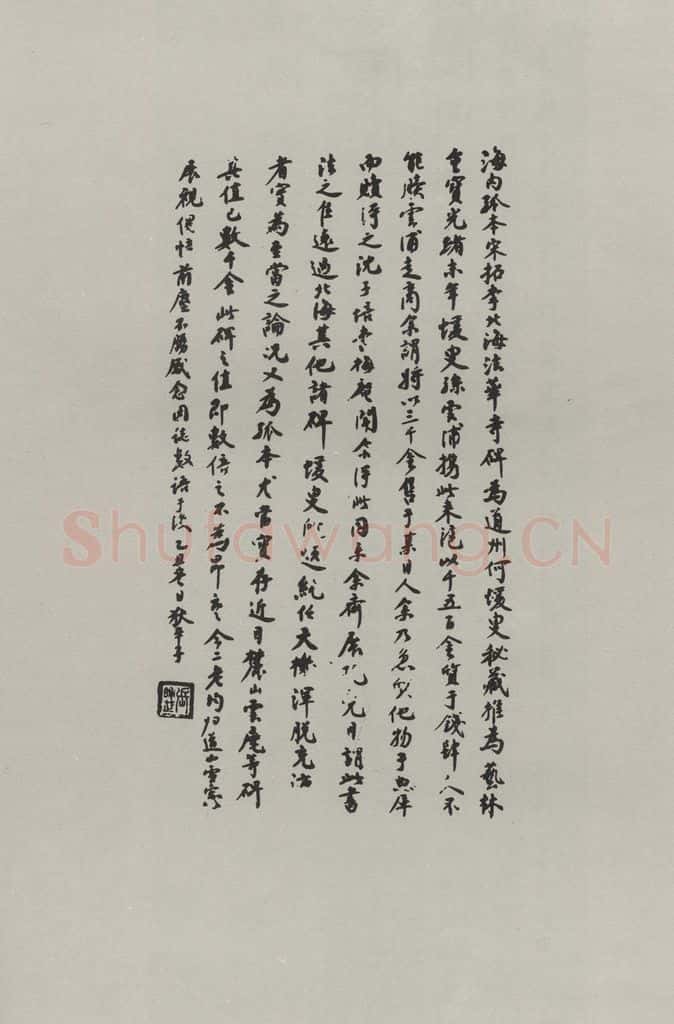 海内孤本宋拓李北海法華寺碑為道州何蝯叟秘藏推為藝林
至寶光緒末年蝯叟孫雲浦攜此來滬以千五百金質于錢肆久不
能贖雲浦走商余謂將以三千金售于某日人余乃急質他物于典庫
而贖得之沈子培李梅庵聞余得此同來余齋展玩謂此書
法之佳遠過北海其他諸碑蝯叟所題純任天機渾脫充沛
者實為至當之論況又為孤本尤當寶存近日麓山雲麾等碑
其值已數千金此碑之值即數倍之不為昂也今二老均歸道山雪窗
展視伋悟前塵不勝感念因誌數語于後乙丑冬日狄平子
Shufawang.CN